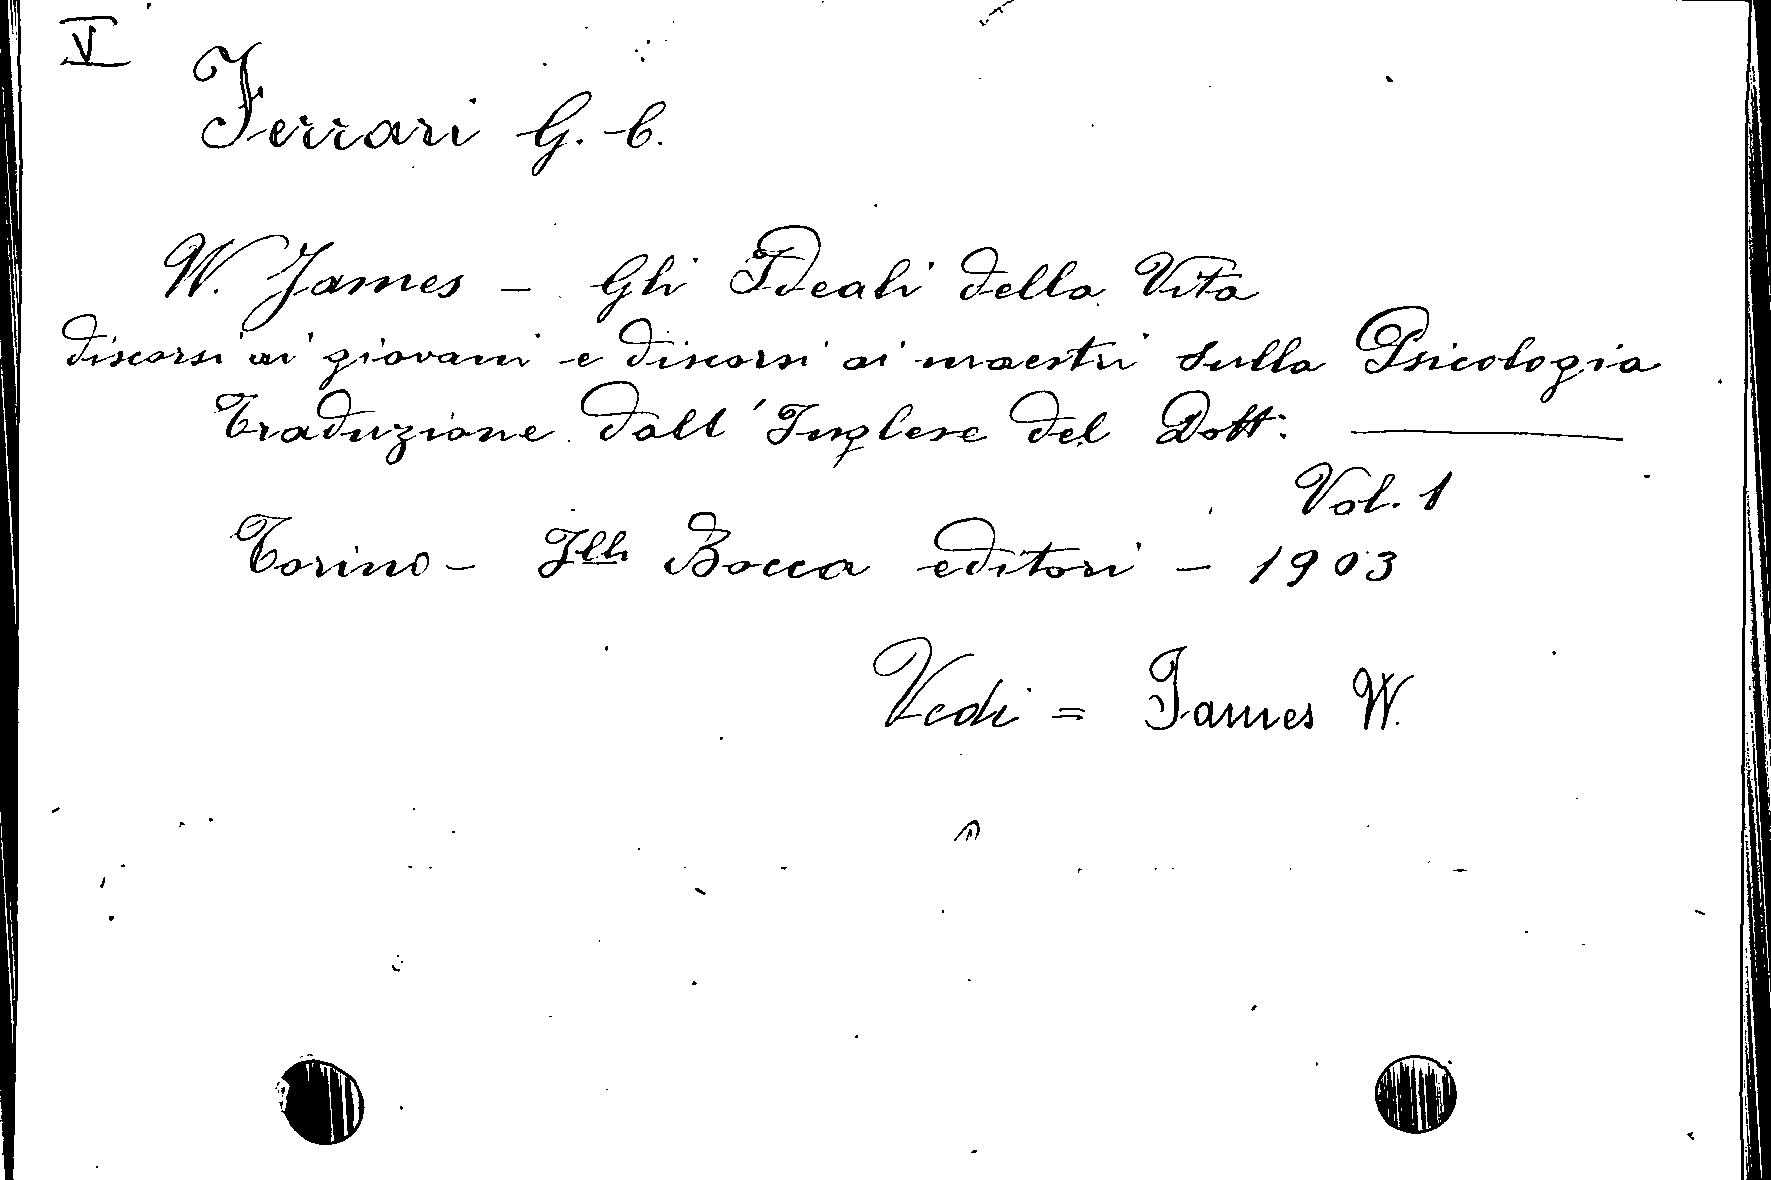 V
Ferrari G. C.
W. James - Gli Ideali della Vita
discorsi ai giovani e discorsi ai maestri sulla Psicologia
Traduzione dall'Inglese del Dott: ———
Vol. 1
Torino - Flli Bocca editori - 1903
Vedi = James W.